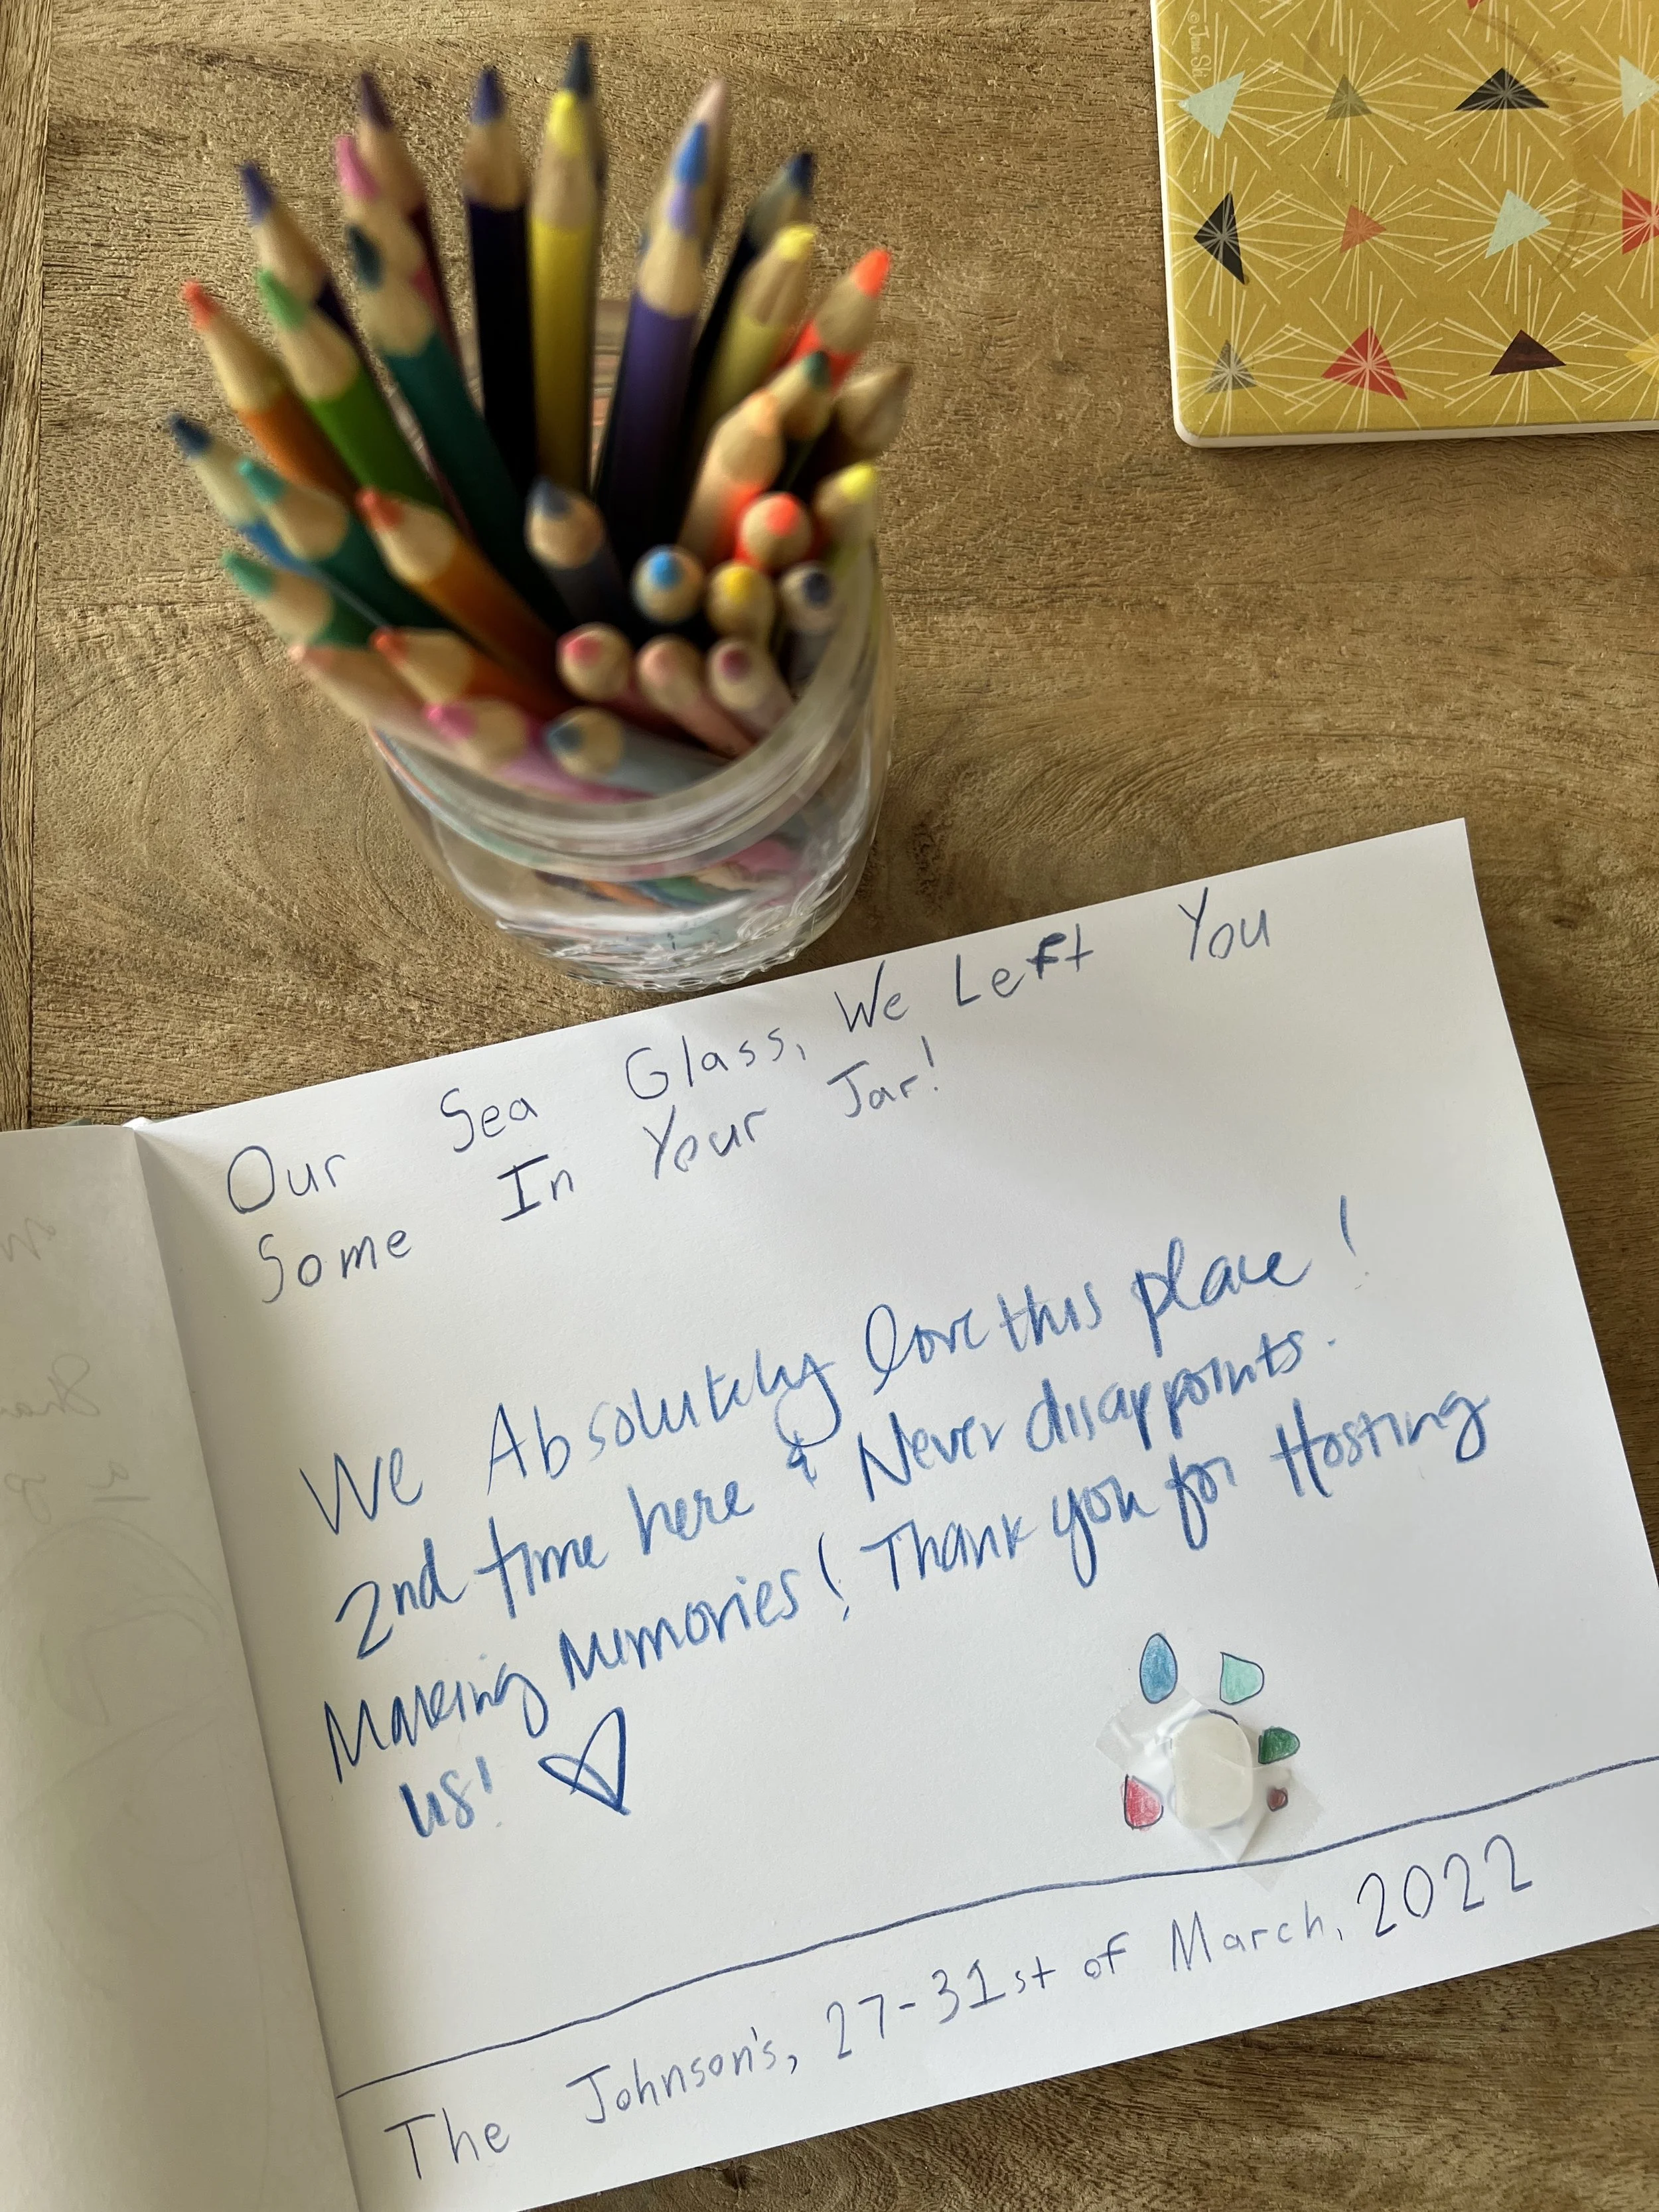 Our Sea Glass, We Left You
Some In Your Jar!
We Absolutely love this place!
2nd time here & Never disappoints.
Making Memories! Thank you for Hosting
us!
The Johnson's, 27-31st of March, 2022